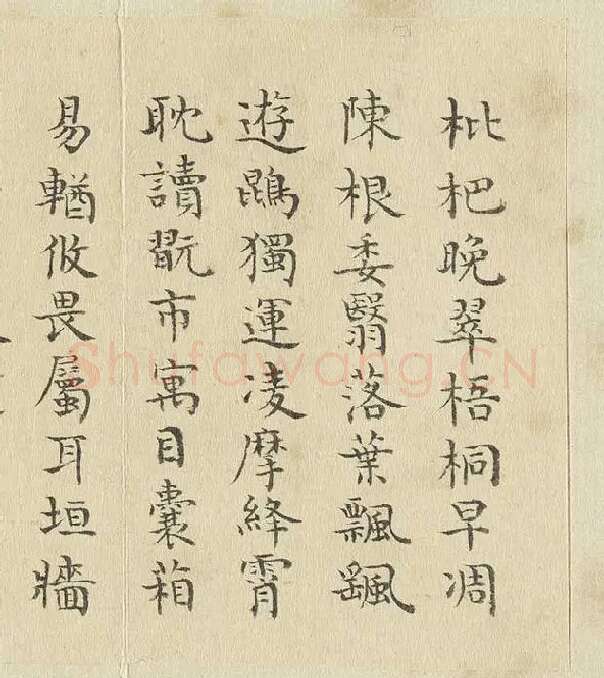 枇杷晚翠梧桐早凋
陳根委翳落葉飄颻
遊鵾獨運凌摩絳霄
耽讀翫市寓目囊箱
易輶攸畏屬耳垣牆
Shufawang.CN